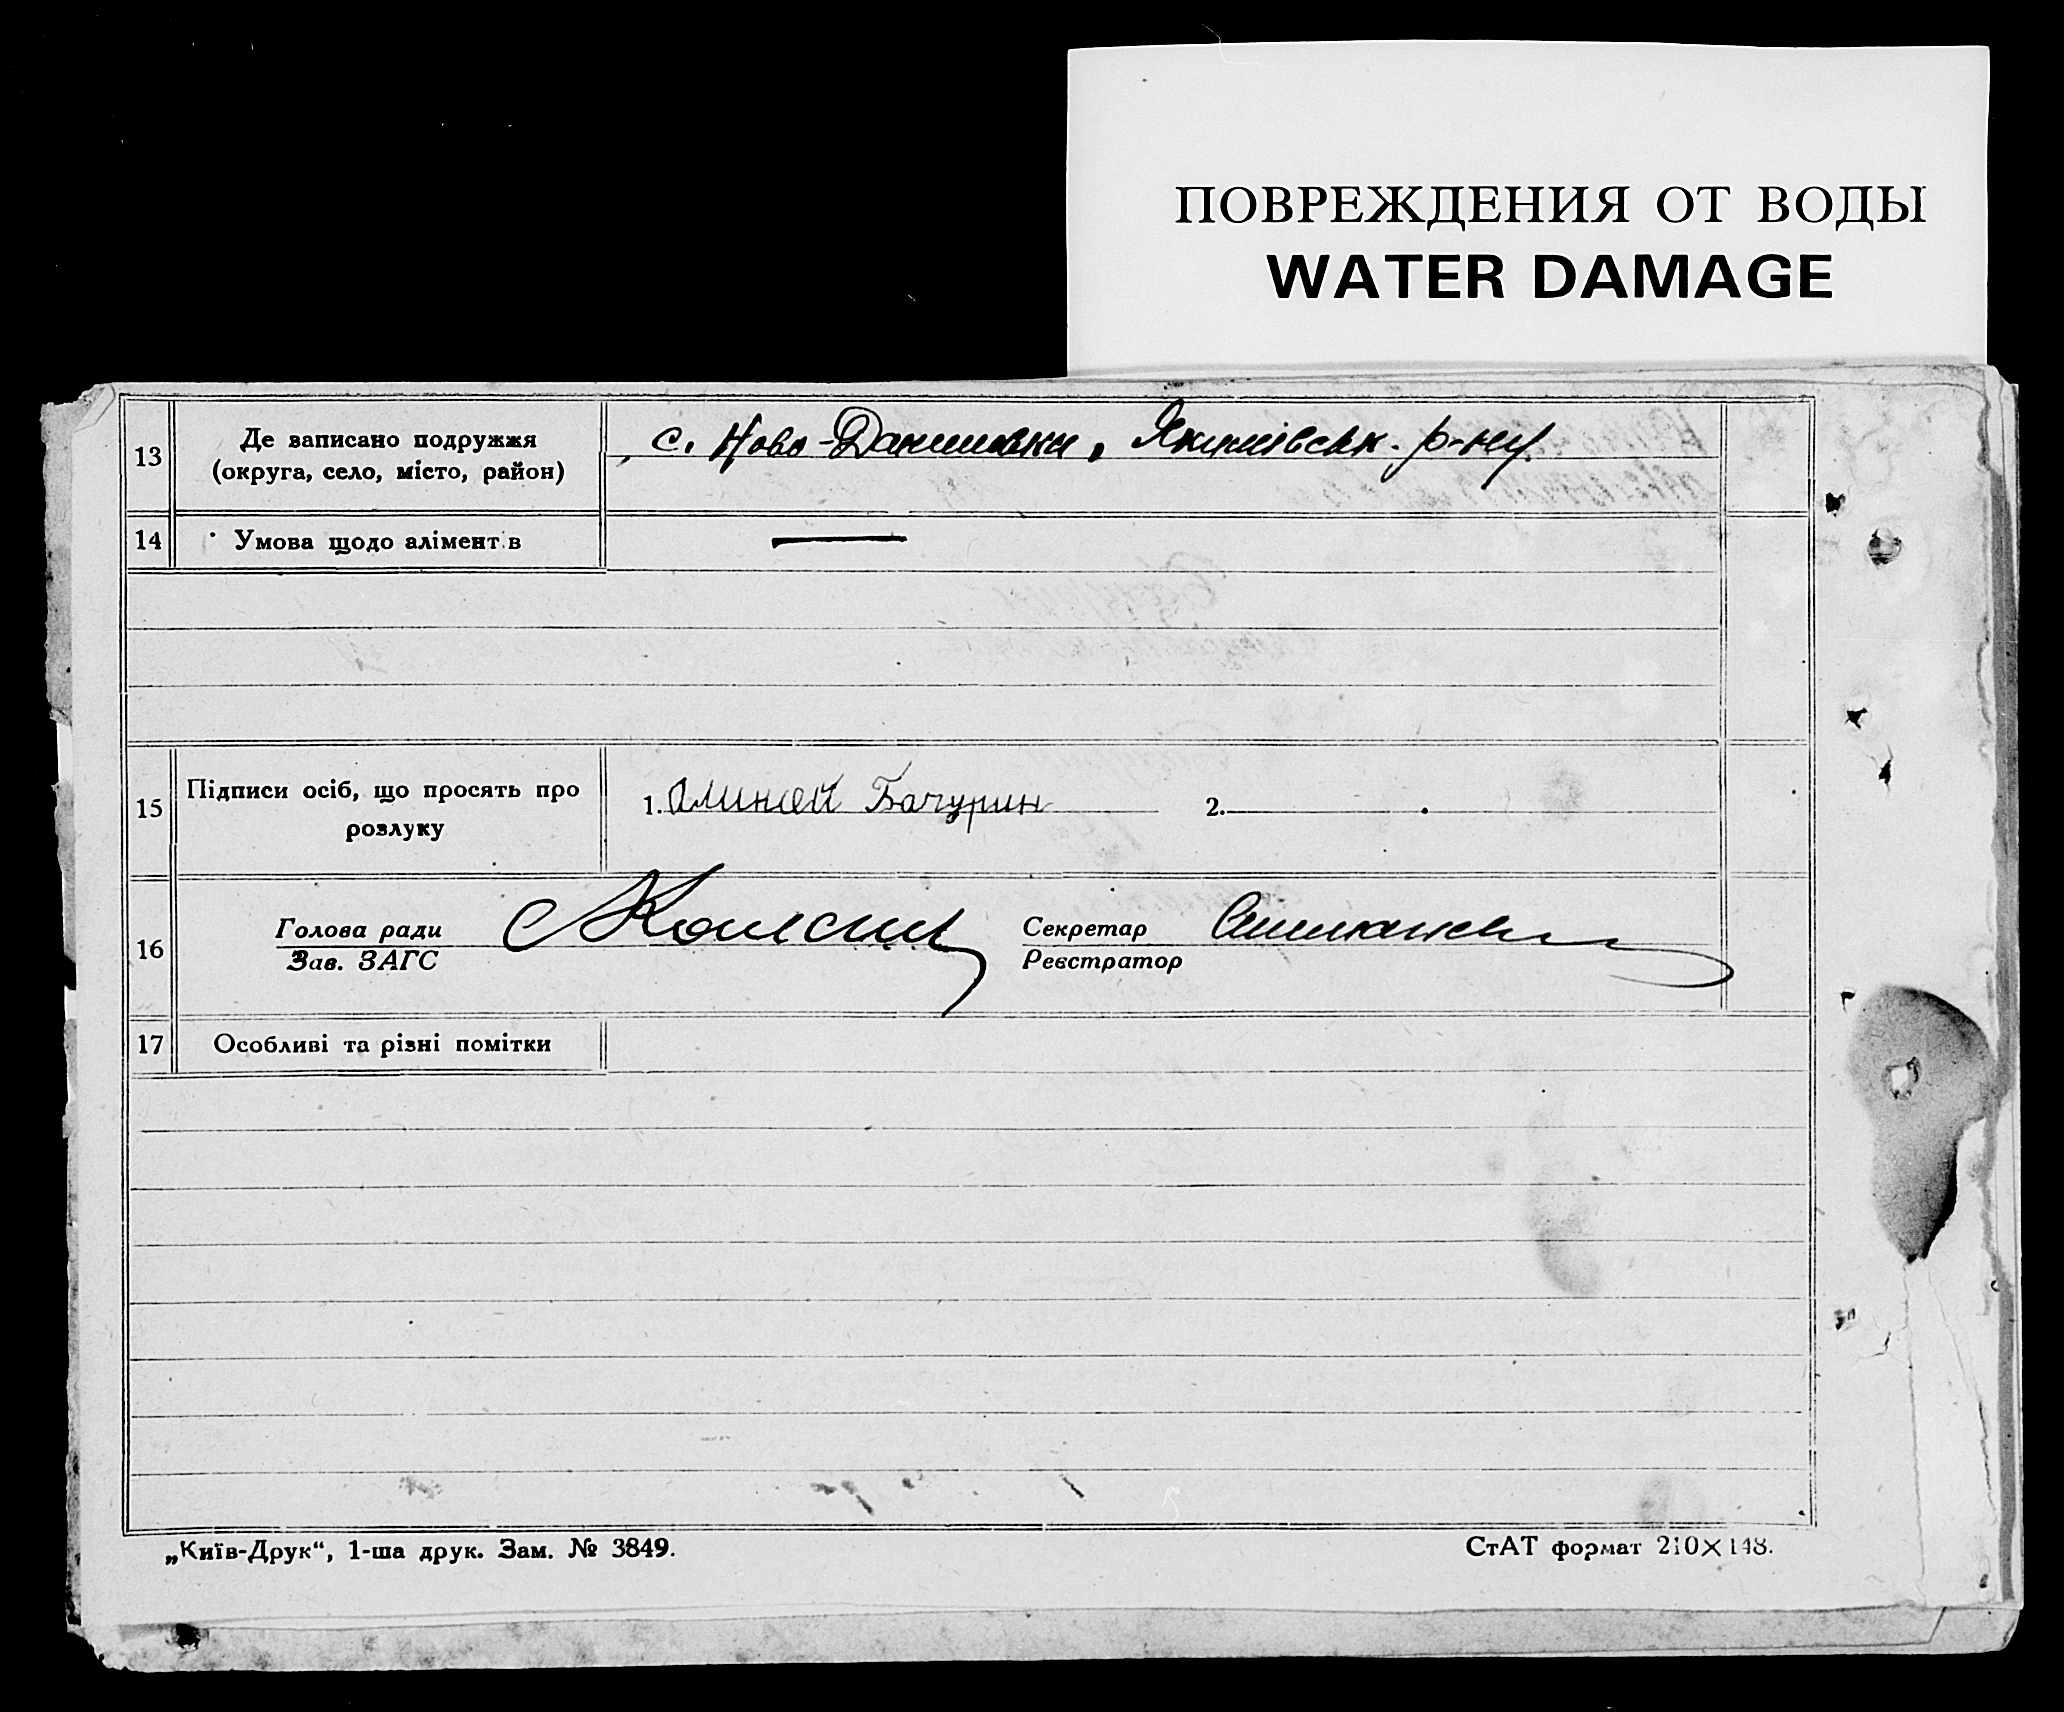 ПОВРЕЖДЕНИЯ ОТ ВОДЫ
WATER DAMAGE
13 Де записано подружжя с. Ново-Данилівки, Якимівськ. р-ну.
(округа, село, місто, район)
14 Умова щодо алімент.в —
15 Підписи осіб, що просять про 1. Бачурин 2.
розлуку
16 Голова ради Секретар
Зав. ЗАГС Реєстратор
17 Особливі та різні помітки
„Київ-Друк“, 1-ша друк. Зам. № 3849. СтАТ формат 210×148.